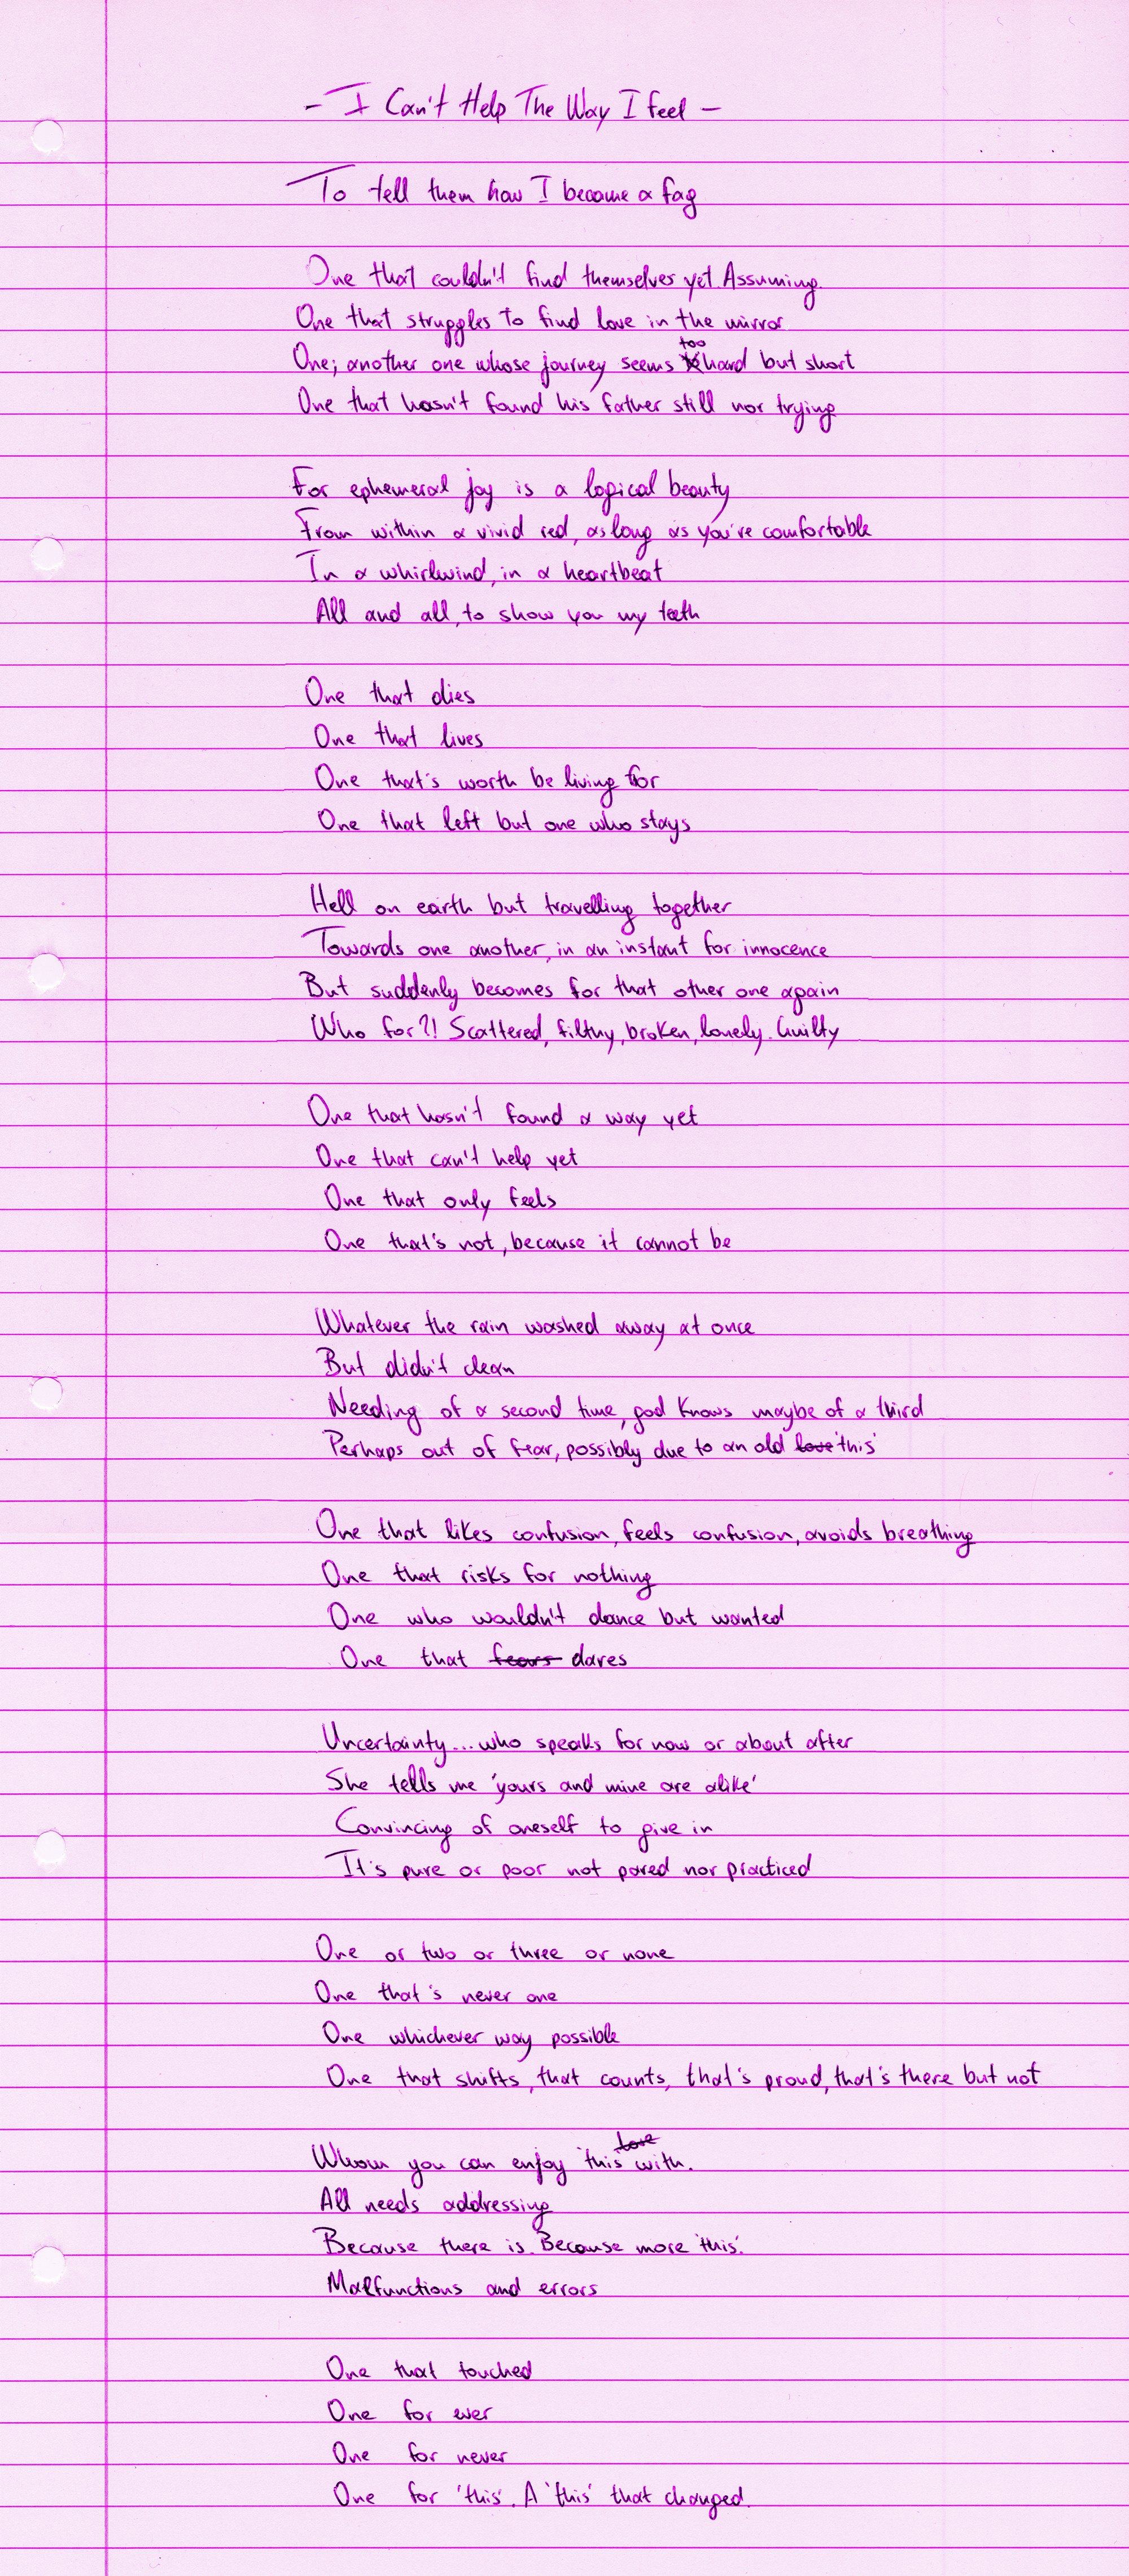 - I Can't Help The Way I feel -
To tell them how I became a fag
One that couldn't find themselves yet. Assuming.
One that struggles to find love in the mirror
One; another one whose journey seems too hard but short
One that hasn't found his father still nor trying
For ephemeral joy is a logical beauty
From within a vivid red, as long as you're comfortable
In a whirlwind, in a heartbeat
All and all, to show you my teeth
One that dies
One that lives
One that's worth be living for
One that left but one who stays
Hell on earth but travelling together
Towards one another, in an instant for innocence
But suddenly becomes for that other one again
Who for?! Scattered, filthy, broken, lonely. Guilty
One that hasn't found a way yet
One that can't help yet
One that only feels
One that's not, because it cannot be
Whatever the rain washed away at once
But didn't clean
Needing of a second time, god knows maybe of a third
Perhaps out of fear, possibly due to an old love 'this'
One that likes confusion, feels confusion, avoids breathing
One that risks for nothing
One who wouldn't dance but wanted
One that fears dares
Uncertainty... who speaks for now or about after
She tells me 'yours and mine are alike'
Convincing of oneself to give in
It's pure or poor not pared nor practiced
One or two or three or none
One that's never one
One whichever way possible
One that shifts, that counts, that's proud, that's there but not
Whom you can enjoy 'this' love with.
All needs addressing
Because there is. Because more 'this'.
Malfunctions and errors
One that touched
One for ever
One for never
One for 'this'. A 'this' that changed.